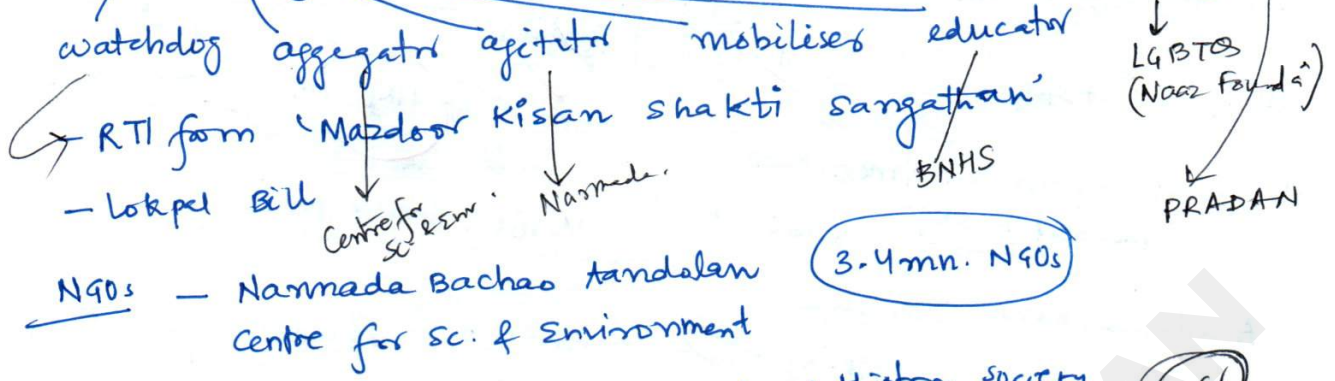 watchdog aggegator agititor mobiliser educator
LGBTQS
(Naaz Foundaⁿ)
→ RTI from 'Mazdoor Kisan Shakti Sangathan'
BNHS
- Lokpal Bill
Centre for
Sc. & Env.
Narmada.
PRADAN
NGOs — Narmada Bachao Aandolan
3.4 mn. NGOs
Centre for Sc. & Environment
society